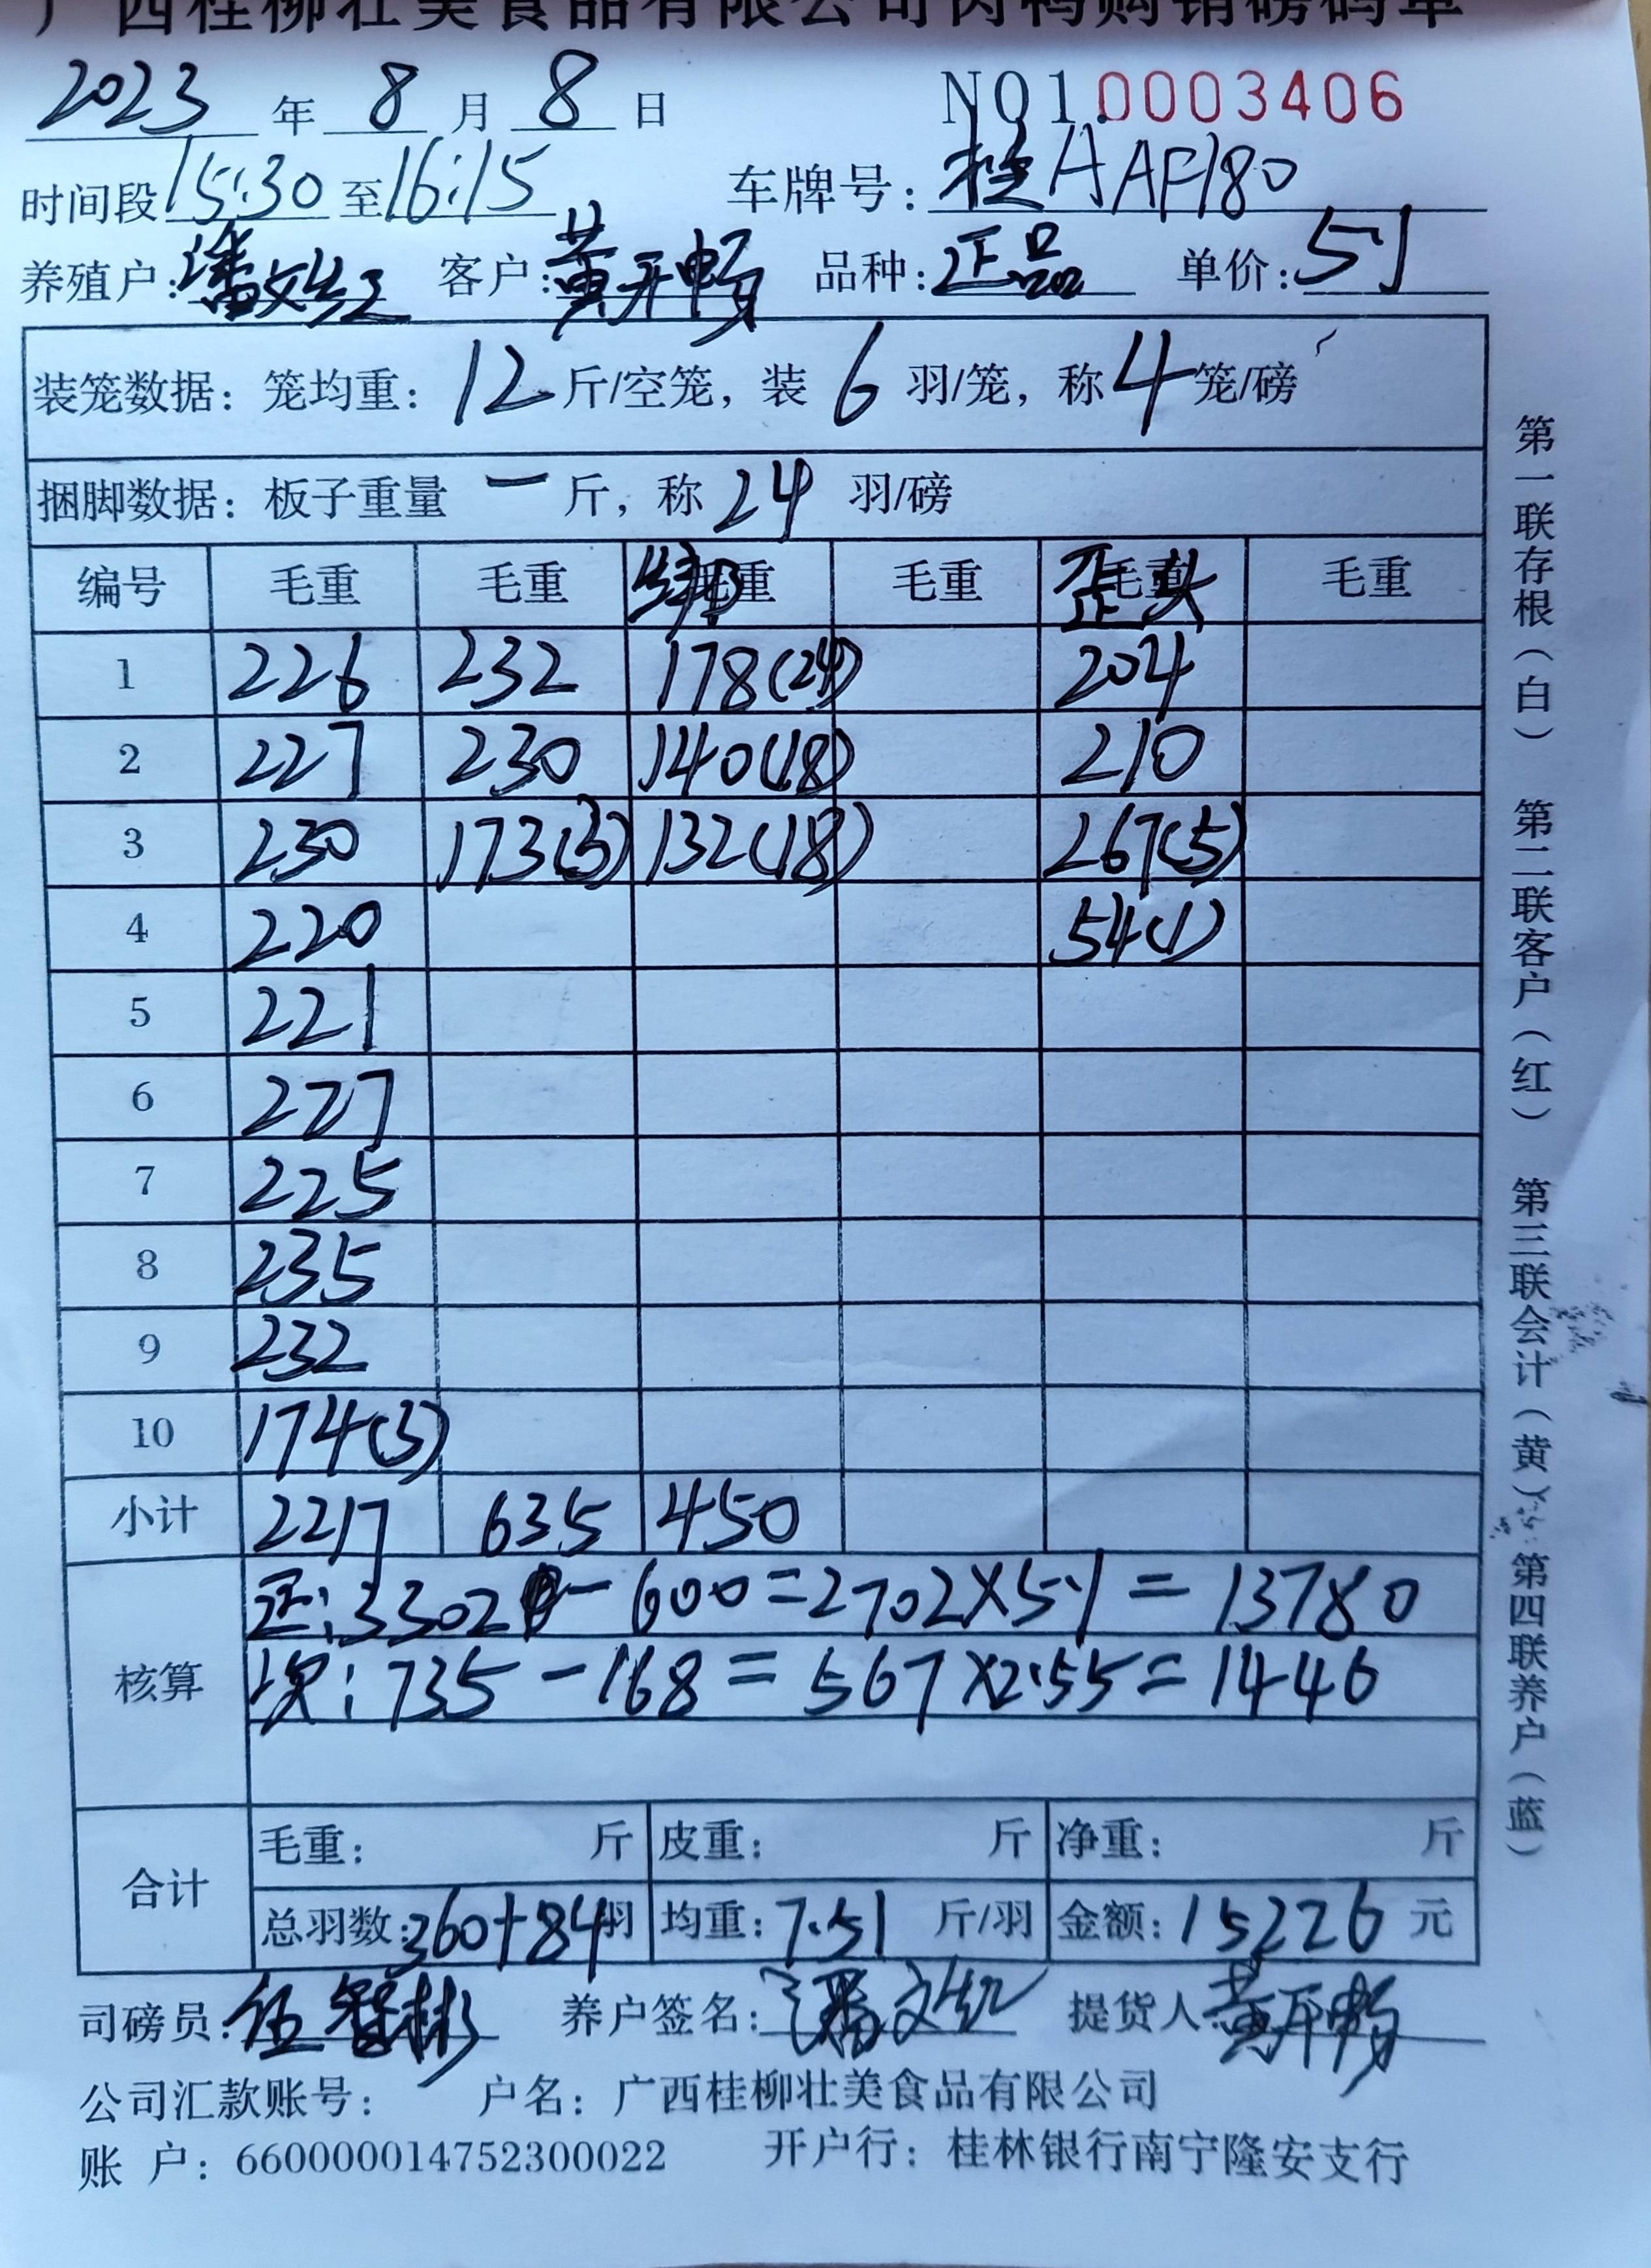 广西桂柳壮美食品有限公司肉鸭购销磅码单
2023 年 8 月 8 日 NO1.0003406
时间段 15:30 至 16:15 车牌号: 桂AAF180
养殖户: 潘文红 客户: 黄开畅 品种: 正品 单价: 5.1
装笼数据: 笼均重: 12 斤/空笼, 装 6 羽/笼, 称 4 笼/磅
捆脚数据: 板子重量 一 斤, 称 24 羽/磅
编号 毛重 毛重 绑脚 毛重 毛重 歪头 毛重 毛重
1 226 232 178(24) 204
2 227 230 140(18) 210
3 230 173(3) 132(18) 267(5)
4 220 54(1)
5 221
6 227
7 225
8 235
9 232
10 174(3)
小计 2217 635 450
核算 正: 3302-600=2702×5.1=13780
次: 735-168=567×2.55=1446
合计 毛重: 斤 皮重: 斤 净重: 斤
总羽数: 360+84 羽 均重: 7.51 斤/羽 金额: 15226 元
司磅员: 伍智彬 养户签名: 潘文红 提货人: 黄开畅
公司汇款账号: 户名: 广西桂柳壮美食品有限公司
账 户: 660000014752300022 开户行: 桂林银行南宁隆安支行
第一联存根(白) 第二联客户(红) 第三联会计(黄) 第四联养户(蓝)